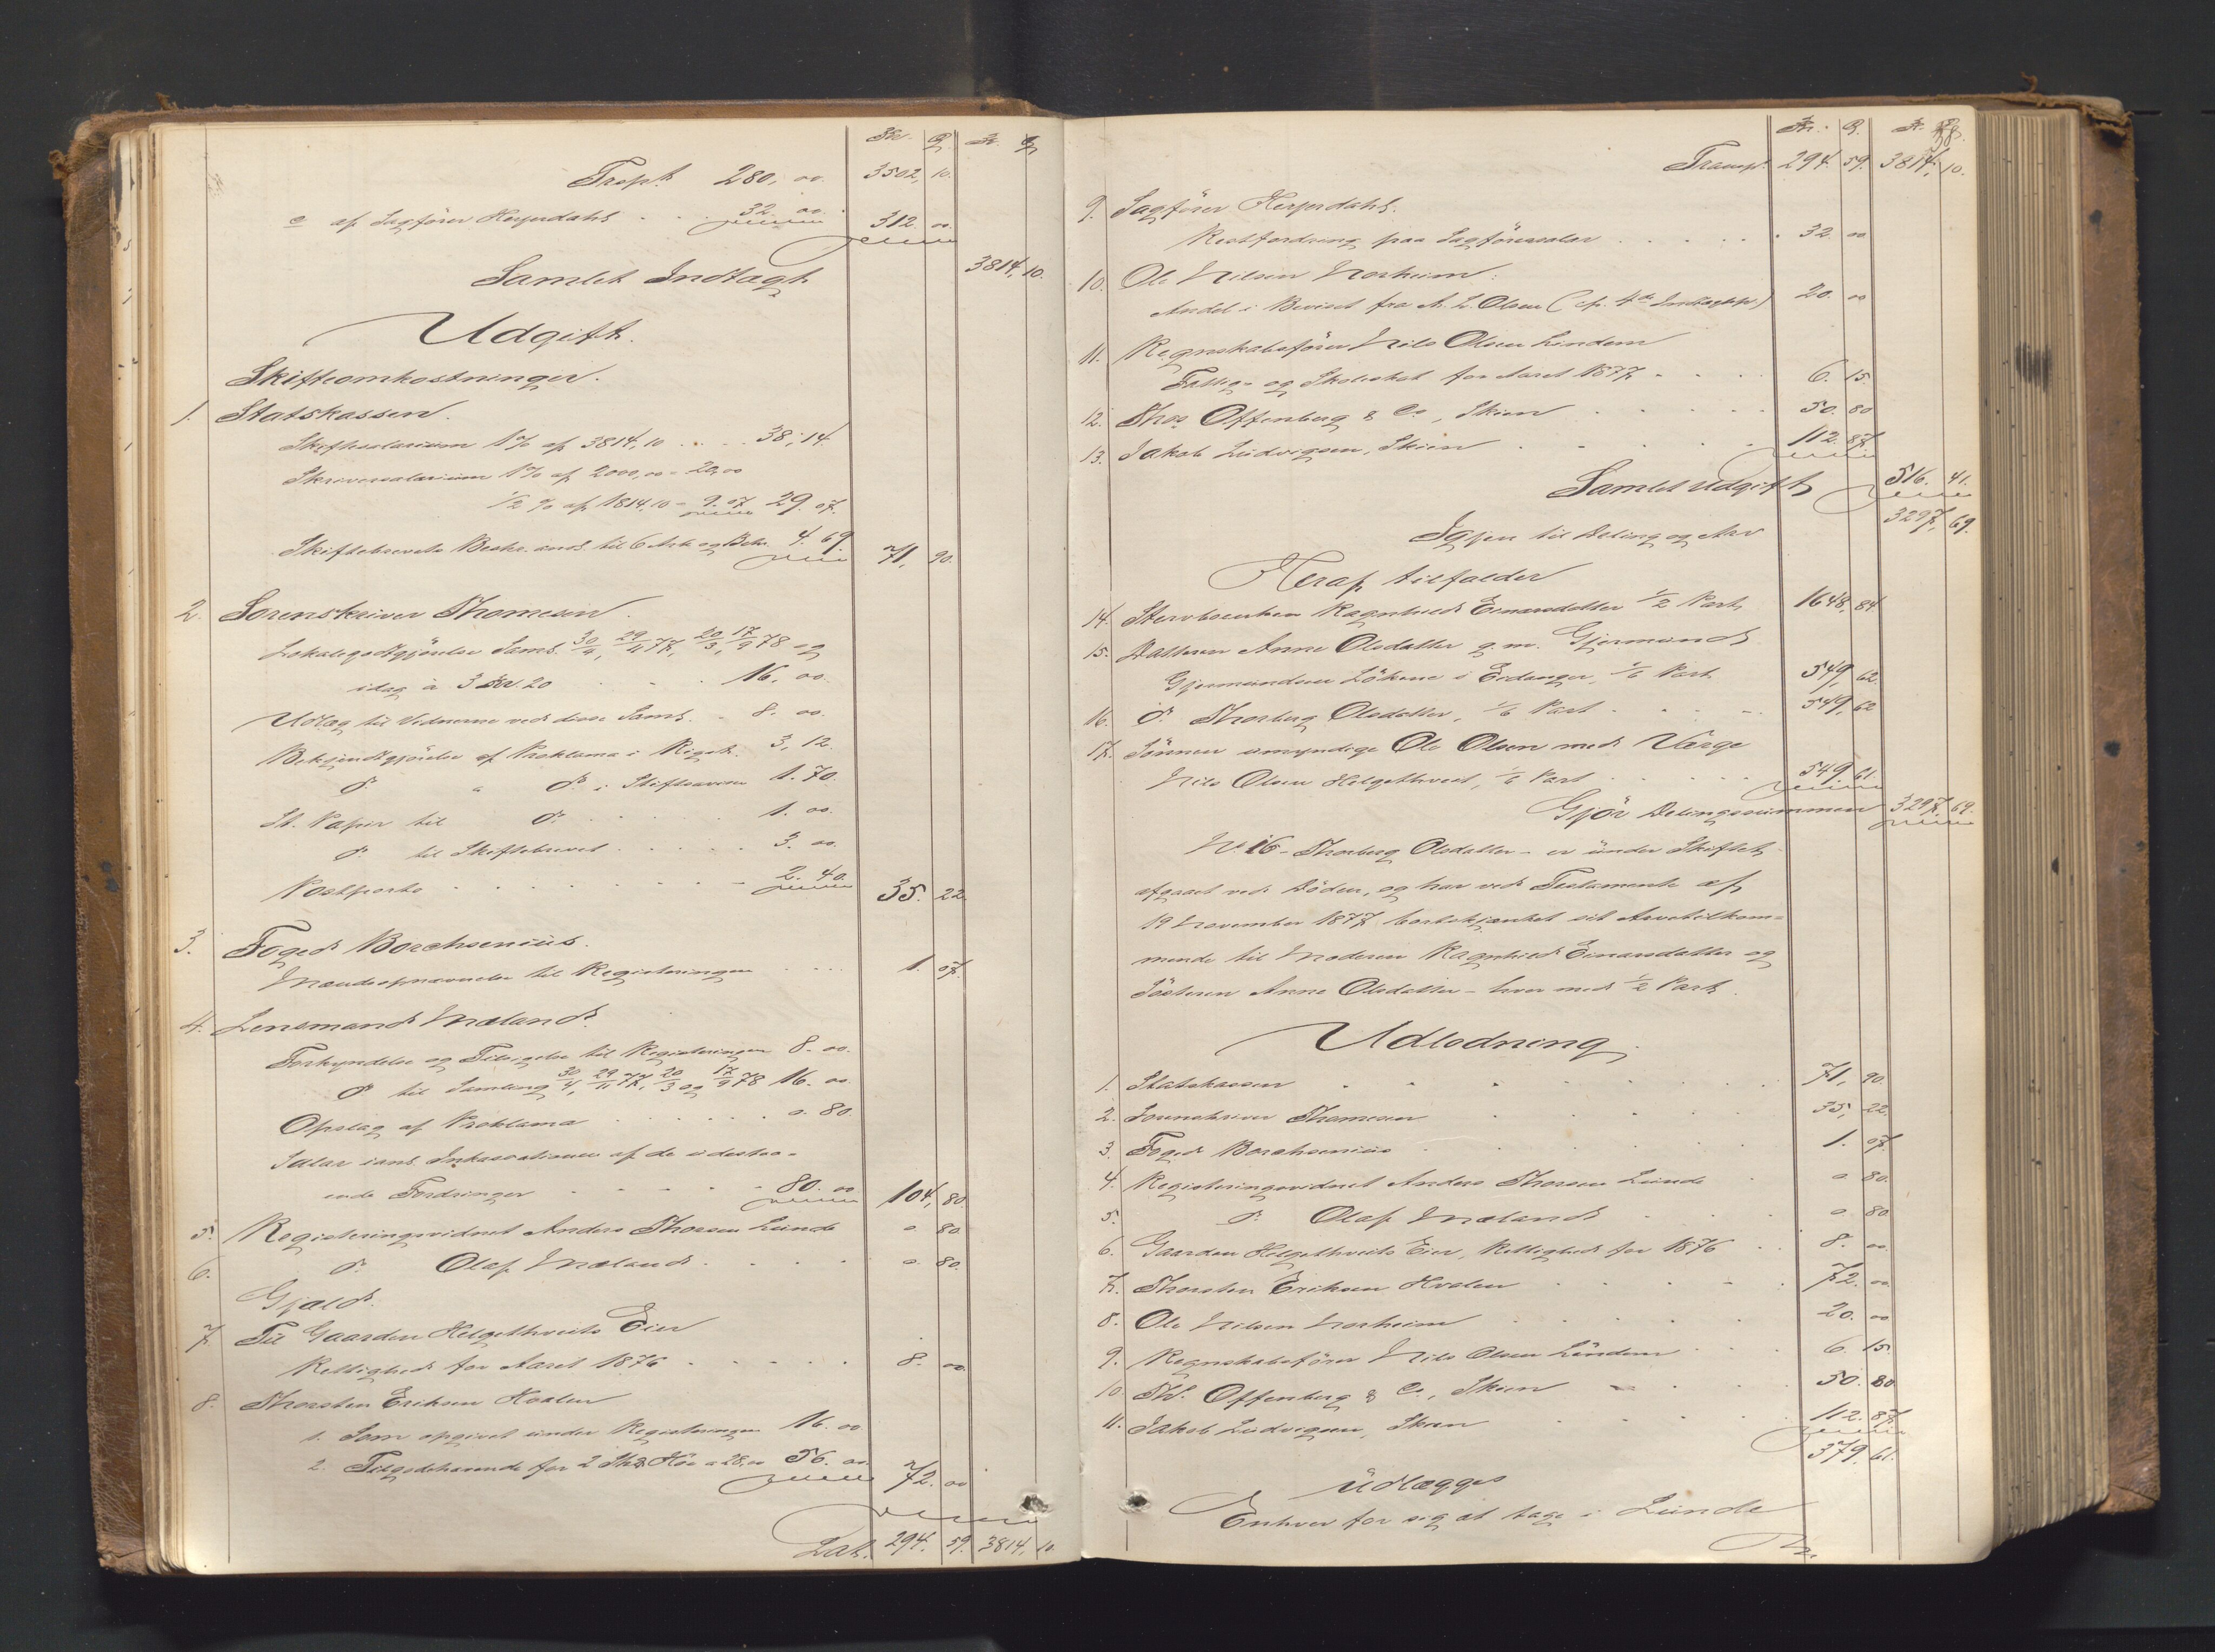 Kr. Ø. Kr. Ø.
Trspt. 280, 00. 3502, 10.
c af Sagfører Herjusdahl . . . 32. 00. 312. 00.
Samlet Indtægt 3814, 10.
Udgift.
Skifteomkostninger.
1. Statskassen.
Skiftesalarium 1% af 3814,10 . . . 38,14
Skriversalarium 1% af 2000,00 = 20,00
1/2 % af 1814,10 = 9.07 29.07.
Skiftebrevets Beskr. ans. til 6 Ark og Bek. 4.69 71, 90.
2. Sorenskriver Thomesen.
Lokalegodtgjørelse Saml. 30/4, 29/11 77, 20/3, 17/9 78 og
idag à 3 Kr. 20 . . . 16. 00.
Udlæg til Vidnerne ved disse Saml. - 8. 00.
Bekjendtgjørelse af Proklama i Rigst. 3, 12.
do. " do. i Stiftsavisen 1. 70.
St. Papir til do. . . . . . 1. 00.
do. til Skiftebrevet . . . . . 3. 00.
Postporto . . . . . . . 2. 40. 35. 22.
3. Foged Borchsenius.
Mændsopnævnelse til Registeringen . . . 1. 07.
4. Lensmand Mæland.
Forkyndelse og Tilsigelse til Registeringen 8. 00.
do. til Samling 30/4, 29/11 77, 20/3 og 17/9 78 16. 00.
Opslag af Proklama . . . . . 0. 80.
Salar ians. Inkassationen af de udestaa-
ende Fordringer . . . . . 80. 00 104, 80.
5. Registeringsvidnet Anders Thorsen Lunde 0. 80.
6. do. Olaf Mæland . . . . 0. 80.
Gjæld.
7. Til Gaarden Helgethveits Eier
Rettighed for Aaret 1876 . . . . . 8. 00.
8. Thorsten Eriksen Hvalen
1. Som opgivet under Registeringen 16. 00
2. Tilgodehavende for 2 Skd. Hø a 28,00 56. 00. 72. 00
Lat. 294. 59. 3814, 10.
Kr. Ø. Kr. Ø.
Transp. 294. 59. 3814, 10.
9. Sagfører Herjusdahl.
Restfordring paa Sagførersalar . . . . . 32. 00
10. Ole Nilsen Norheim.
Andel i Beviset fra A. L. Olsen (cfr. 4de Indtægtsp.) 20. 00
11. Regnskabsfører Nils Olsen Lindem
Fattig- og Skoleskat for Aaret 1877 - . . . 6. 15.
12. Thos Offenberg & Co, Skien . . . . . 50. 80
13. Jakob Ludvigsen, Skien . . . . . 112. 87.
Samlet Udgift 516. 41.
Igjen til Deling og Arv 3297, 69.
Heraf tilfalder
14. Stervboenken Ragnhild Einarsdatter 1/2 Part 1648, 84.
15. Datteren Anne Olsdatter g. m. Gjermund
Gjermundsen Løkene i Eidanger, 1/6 Part 549, 62.
16. do Thorberg Olsdatter, 1/6 Part . . . . 549, 62
17. Sønnen umyndige Ole Olsen med Værge
Nils Olsen Helgethveit, 1/6 Part . . . . . 549. 61.
Gjør Delingssummen 3297, 69.
No. 16 - Thorberg Olsdatter - er under Skiftet
afgaaet ved Døden, og har ved Testamente af
19 November 1877 bortskjænket sit Arvetilkom-
mende til Moderen Ragnhild Einarsdatter og
Søsteren Anne Olsdatter - hver med 1/2 Part.
Udlodning.
1. Statskassen . . . . . . . 71, 90.
2. Sorenskriver Thomesen . . . . . 35, 22.
3. Foged Borchsenius . . . . . . 1. 07.
4. Registeringsvidnet Anders Thorsen Lunde . 0 80.
5. do. Olaf Mæland . . . 0 80
6. Gaarden Helgethveits Eier, Rettighed for 1876 . . 8. 00.
7. Thorsten Eriksen Hvalen . . . . . 72. 00
8. Ole Nilsen Norheim . . . . . 20. 00
9. Regnskabsfører Nils Olsen Lindem . . . 6. 15
10. Ths. Offenberg & Co, Skien . . . . 50. 80
11. Jakob Ludvigsen, Skien . . . . . 112. 87.
379. 61.
Udlægges
Enhver for sig at tage i Lunde